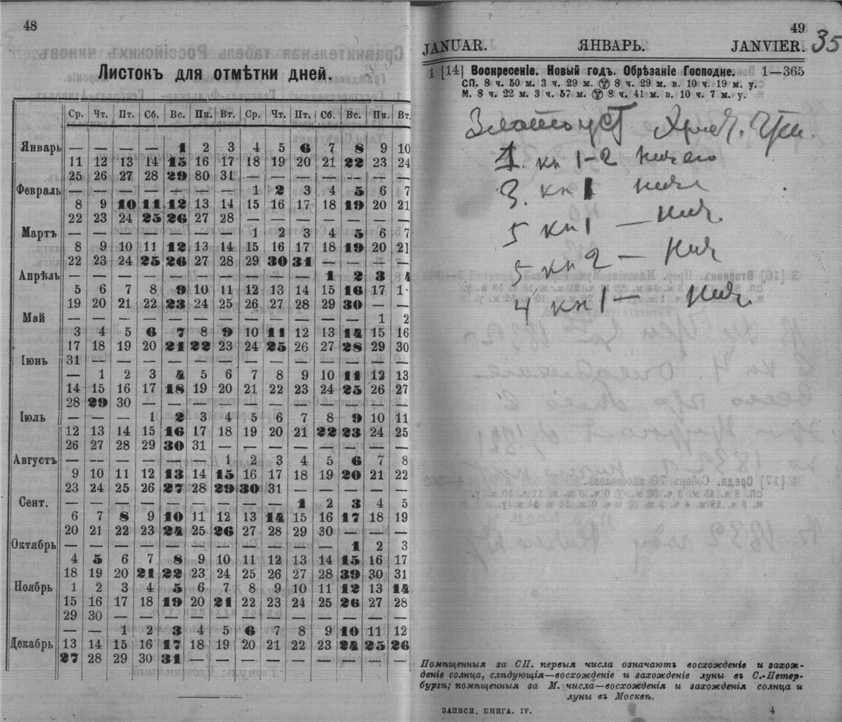 48
Листокъ для отмѣтки дней.
Ср. Чт. Пт. Сб. Вс. Пн. Вт. Ср. Чт. Пт. Сб. Вс. Пн. Вт.
Январь — — — — 1 2 3 4 5 6 7 8 9 10
11 12 13 14 15 16 17 18 19 20 21 22 23 24
25 26 27 28 29 30 31 — — — — — — —
Февраль — — — — — — — 1 2 3 4 5 6 7
8 9 10 11 12 13 14 15 16 17 18 19 20 21
22 23 24 25 26 27 28 — — — — — — —
Мартъ — — — — — — — 1 2 3 4 5 6 7
8 9 10 11 12 13 14 15 16 17 18 19 20 21
22 23 24 25 26 27 28 29 30 31 — — — —
Апрѣль — — — — — — — — — — 1 2 3 4
5 6 7 8 9 10 11 12 13 14 15 16 17 1
19 20 21 22 23 24 25 26 27 28 29 30 — —
Май — — — — — — — — — — — — 1 2
3 4 5 6 7 8 9 10 11 12 13 14 15 16
17 18 19 20 21 22 23 24 25 26 27 28 29 30
31 — — — — — — — — — — — — —
Іюнь — 1 2 3 4 5 6 7 8 9 10 11 12 13
14 15 16 17 18 19 20 21 22 23 24 25 26 27
28 29 30 — — — — — — — — — — —
Іюль — — — 1 2 3 4 5 6 7 8 9 10 11
12 13 14 15 16 17 18 19 20 21 22 23 24 25
26 27 28 29 30 31 — — — — — — — —
Августъ — — — — — — 1 2 3 4 5 6 7 8
9 10 11 12 13 14 15 16 17 18 19 20 21 22
23 24 25 26 27 28 29 30 31 — — — — —
Сент. — — — — — — — — — 1 2 3 4 5
6 7 8 9 10 11 12 13 14 15 16 17 18 19
20 21 22 23 24 25 26 27 28 29 30 — — —
Октябрь — — — — — — — — — — — 1 2 3
4 5 6 7 8 9 10 11 12 13 14 15 16 17
18 19 20 21 22 23 24 25 26 27 28 39 30 31
Ноябрь 1 2 3 4 5 6 7 8 9 10 11 12 13 14
15 16 17 18 19 20 21 22 23 24 25 26 27 28
29 30 — — — — — — — — — — — —
Декабрь — — 1 2 3 4 5 6 7 8 9 10 11 12
13 14 15 16 17 18 19 20 21 22 23 24 25 26
27 28 29 30 31 — — — — — — — — —
49
35
JANUAR. ЯНВАРЬ. JANVIER.
1 [14] Воскресеніе. Новый годъ. Обрѣзаніе Господне. 1—365
СП. 8 ч. 50 м. 3 ч. 29 м. 8 ч. 29 м. в. 10 ч. 19 м. у.
М. 8 ч. 22 м. 3 ч. 57 м. 8 ч. 41 м. в. 10 ч. 7 м. у.
Златоуст
1. кн 1-2 ничего
3. кн 1 нич
5 кн 1 — нич.
5 кн 2 — нич
4 кн 1 — нич.
Помѣщенныя за СП. первыя числа означаютъ восхожденіе и захож-
деніе солнца, слѣдующія—восхожденіе и захожденіе луны въ С.-Петер-
бургѣ; помѣщенныя за М. числа—восхожденія и захожденія солнца и
луны въ Москвѣ.
ЗАПИСН. КНИГА. IV. 4